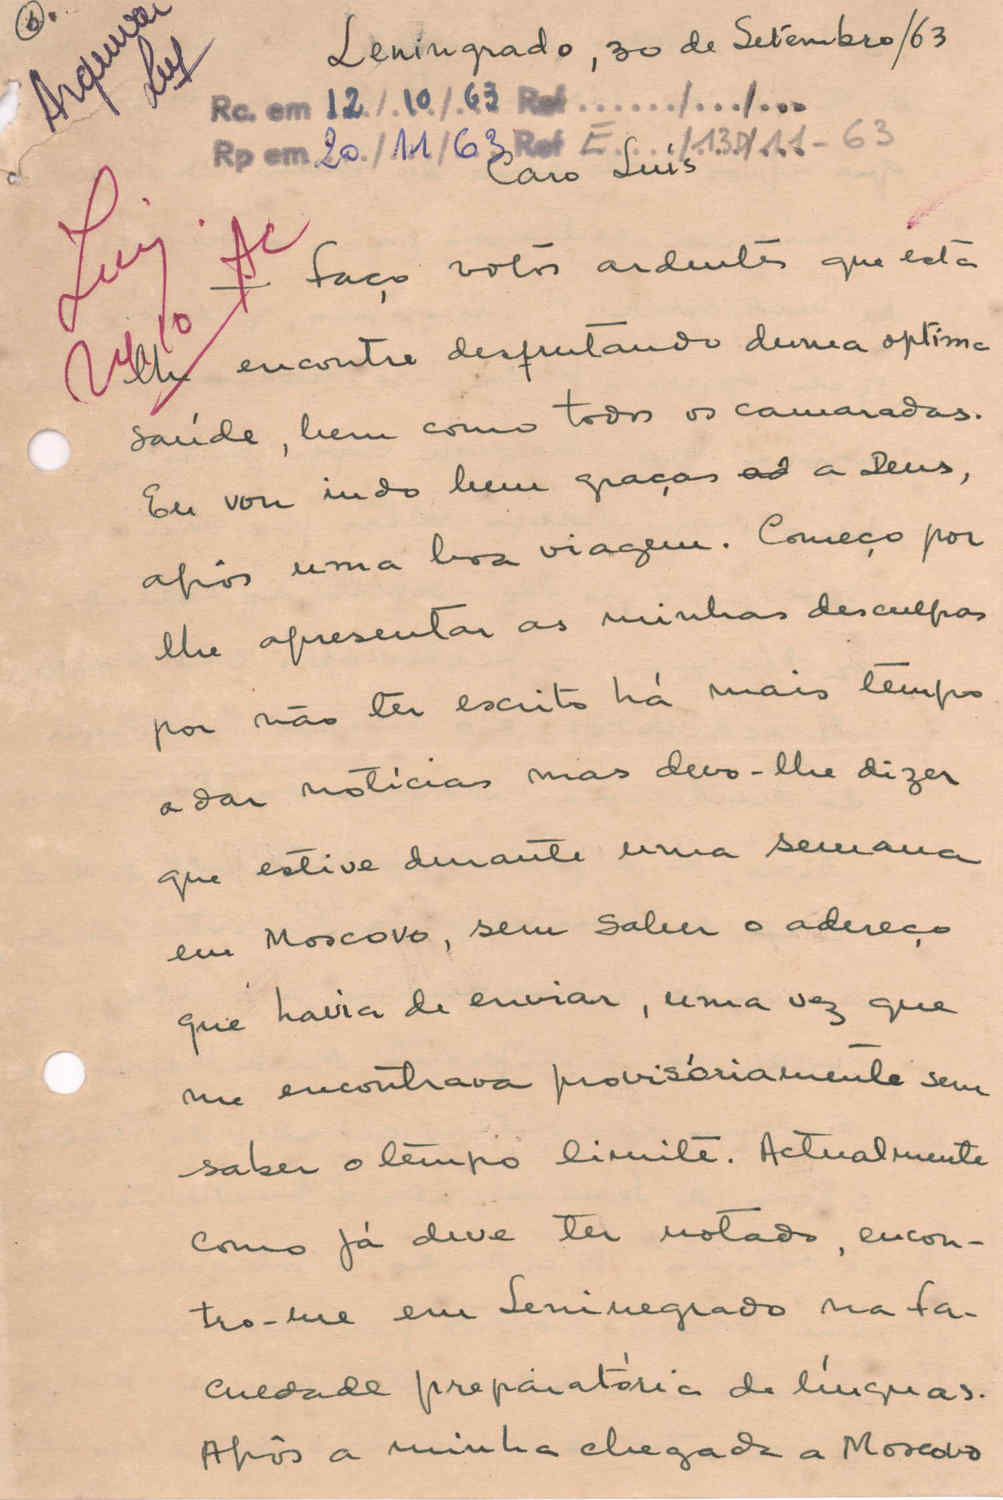 Arquivar
Leningrado, 30 de Setembro/63
Rc. em 12./.10./.63 Ref ....../.../...
Rp em 20./11/63 Ref E..../.139/.11-63
Caro Luís
Luís.
24/10
faço votos ardentes que esta
lhe encontre desfrutando duma optima
saúde, bem como todos os camaradas.
Eu vou indo bem graças a Deus,
após uma boa viagem. Começo por
lhe apresentar as minhas desculpas
por não ter escrito há mais tempo
a dar notícias mas devo-lhe dizer
que estive durante uma semana
em Moscovo, sem saber o adereço
que havia de enviar, uma vez que
me encontrava provisóriamente sem
saber o tempo limite. Actualmente
como já deve ter notado, encon-
tro-me em Leninegrado na fa-
culdade preparatória de línguas.
Após a minha chegada a Moscovo